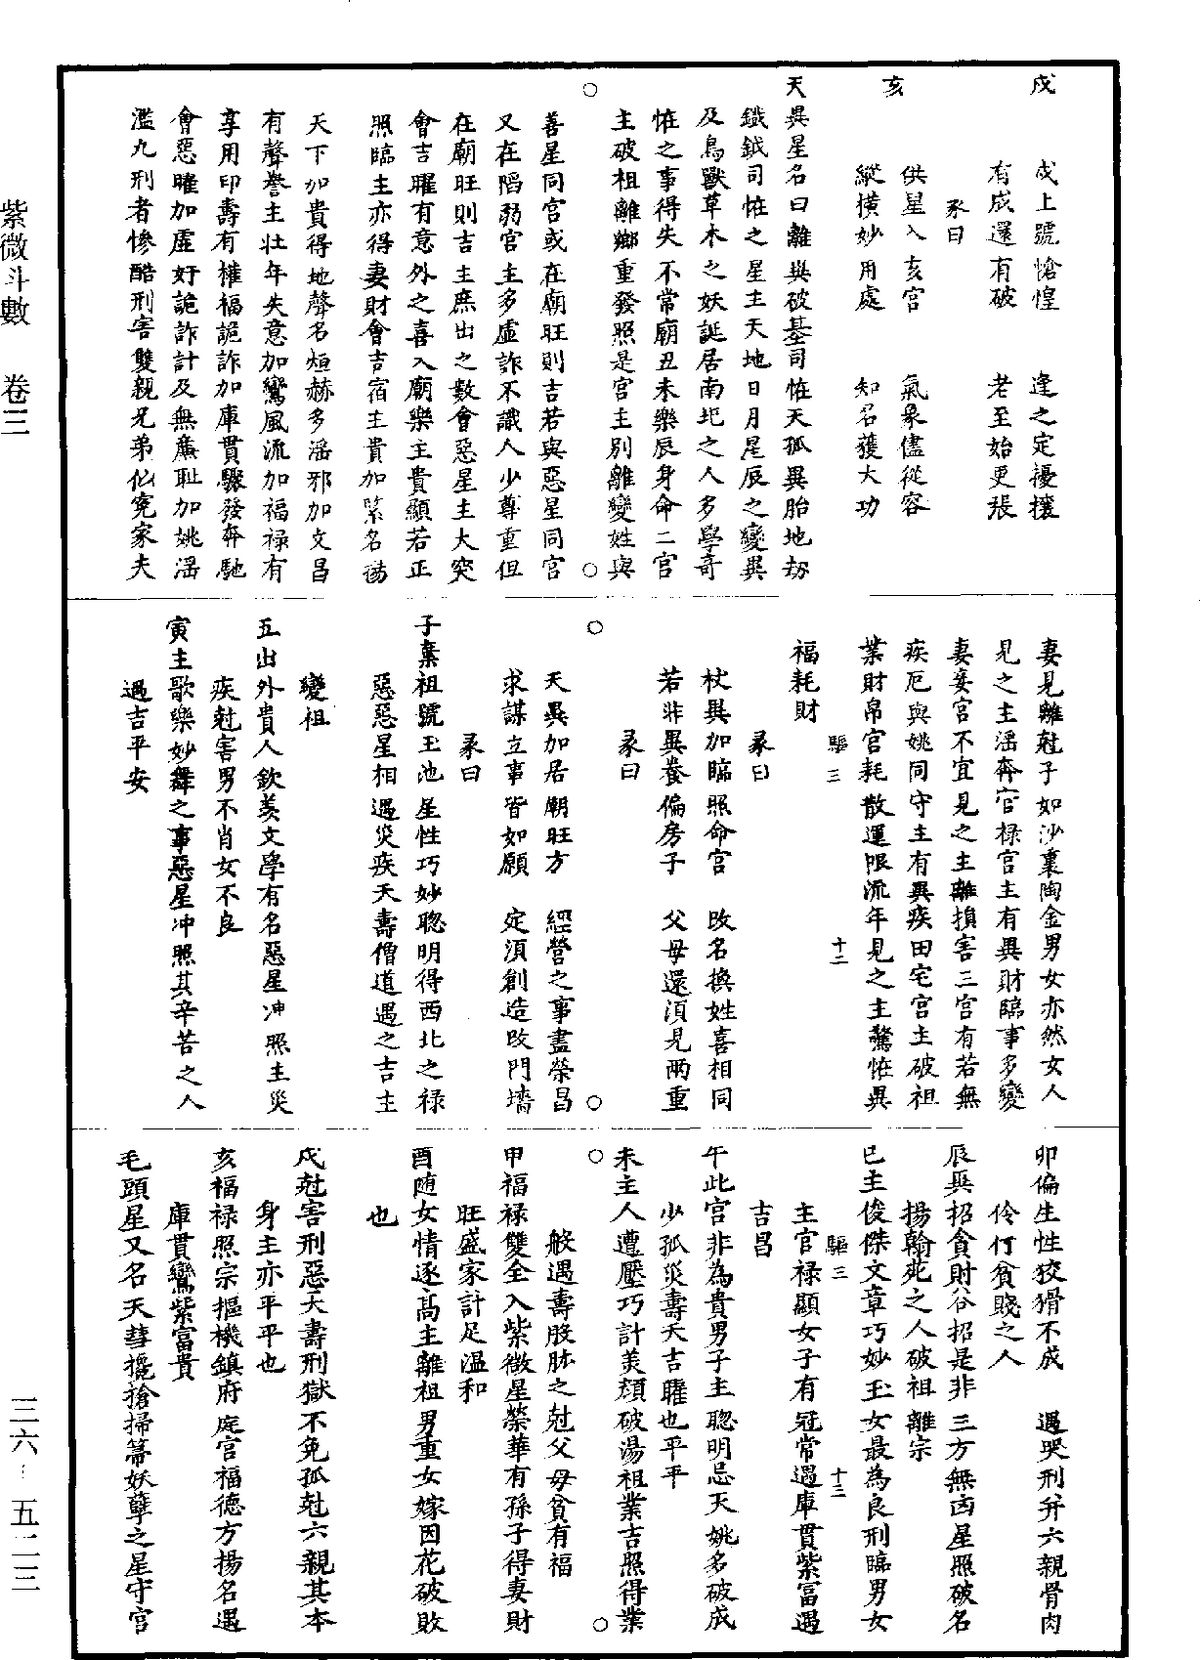 紫微斗數 卷三
戌
戌上號愴惶 逢之定擾攘
有成還有破 老至始更張
亥
彖曰
供星入亥宮 氣象儘從容
縱橫妙用處 知名獲大功
天異星名曰離異破基司恠天孤異胎地刼
鐵鉞司恠之星主天地日月星辰之變異
及鳥獸草木之妖誕居南北之人多學奇
恠之事得失不常廟丑未樂辰身命二宮
主破祖離鄉重發照是宮主別離變姓與
善星同宮或在廟旺則吉若與惡星同宮
又在陷弱宮主多虛詐不識人少尊重但
在廟旺則吉主庶出之數會惡星主大突
會吉曜有意外之喜入廟樂主貴顯若正
照臨主亦得妻財會吉宿主貴加紫名揚
天下加貴得地聲名烜赫多滛邪加文昌
有聲譽主壯年失意加鸞風流加福祿有
享用印壽有權福詭詐加庫貫驟發奔馳
會惡曜加虛奸詭詐計及無廉耻加姚滛
濫九刑者慘酷刑害雙親兄弟仏寃家夫
妻見離尅子如沙裏陶金男女亦然女人
見之主滛奔官禄宮主有異財臨事多變
妻妾宮不宜見之主離損害三宮有若無
疾厄與姚同守主有異疾田宅宮主破祖
業財帛宮耗散運限流年見之主驚恠異
驅三 十二
福耗財
彖曰
杖異加臨照命宮 改名換姓喜相同
若非異養偏房子 父母還須見兩重
彖曰
天異加居廟旺方 經營之事盡榮昌
求謀立事皆如願 定須創造改門墻
彖曰
子棄祖號玉池星性巧妙聰明得西北之禄
惡惡星相遇災疾夭壽僧道遇之吉主
變祖
丑出外貴人欽羨文學有名惡星冲照主災
疾尅害男不肖女不良
寅主歌樂妙舞之事惡星冲照其辛苦之人
遇吉平安
卯偏生性狡猾不成 遇哭刑并六親骨肉
伶仃貧賤之人
辰異招貪財谷招是非三方無凶星照破名
揚翰苑之人破祖離宗
巳主俊傑文章巧妙玉女最為良刑臨男女
驅三 十三
主官禄顯女子有冠常遇庫貫紫富遇
吉昌
午此宮非為貴男子主聰明忌天姚多破成
少孤災壽夭吉曜也平平
未主人遭壓巧計美頹破湯祖業吉照得業
般遇壽股胅之尅父母貧有福
甲福禄雙全入紫微星榮華有孫子得妻財
旺盛家計足溫和
酉随女情逐高主離祖男重女嫁因花破敗
也
戌尅害刑惡夭壽刑獄不免孤尅六親其本
身主亦平平也
亥福禄照宗摳機鎮府庭宮福德方揚名遇
庫貫鸞紫富貴
毛頭星又名天彗攙搶掃箒妖孽之星守宮
三六–五二三